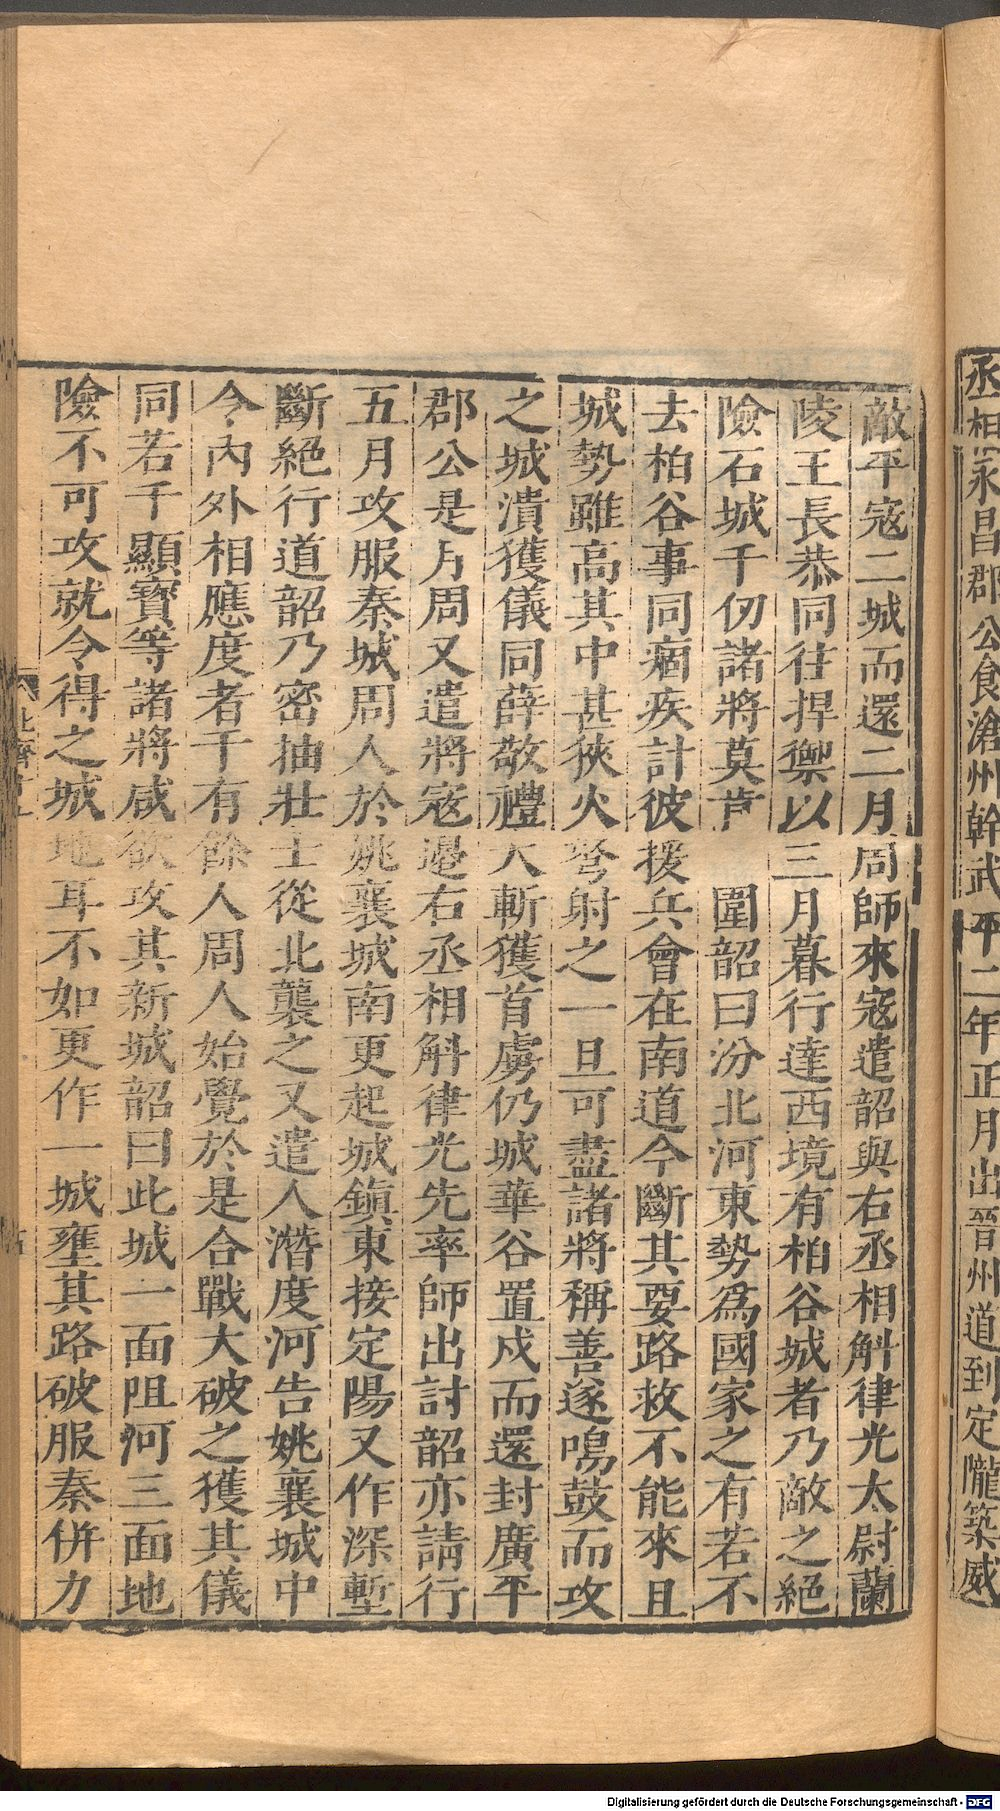 丞相永昌郡公食滄州幹武平二年正月出晉州道到定隴築威
敵平寇二城而還二月周師來寇遣韶與右丞相斛律光太尉蘭
陵王長恭同往捍禦以三月暮行達西境有栢谷城者乃敵之絕
險石城千仞諸將莫肯圍韶曰汾北河東勢爲國家之有若不
去栢谷事同痼疾計彼援兵會在南道今斷其要路救不能來且
城勢雖高其中甚狹火弩射之一旦可盡諸將稱善遂鳴鼓而攻
之城潰獲儀同薛敬禮大斬獲首虜仍城華谷置戍而還封廣平
郡公是月周又遣將寇邊右丞相斛律光先率師出討韶亦請行
五月攻服秦城周人於姚襄城南更起城鎮東接定陽又作深塹
斷絕行道韶乃密抽壯士從北襲之又遣人潛度河告姚襄城中
令內外相應度者千有餘人周人始覺於是合戰大破之獲其儀
同若干顯寶等諸將咸欲攻其新城韶曰此城一面阻河三面地
險不可攻就令得之城地耳不如更作一城壅其路破服秦併力
Digitalisierung gefördert durch die Deutsche Forschungsgemeinschaft - DFG